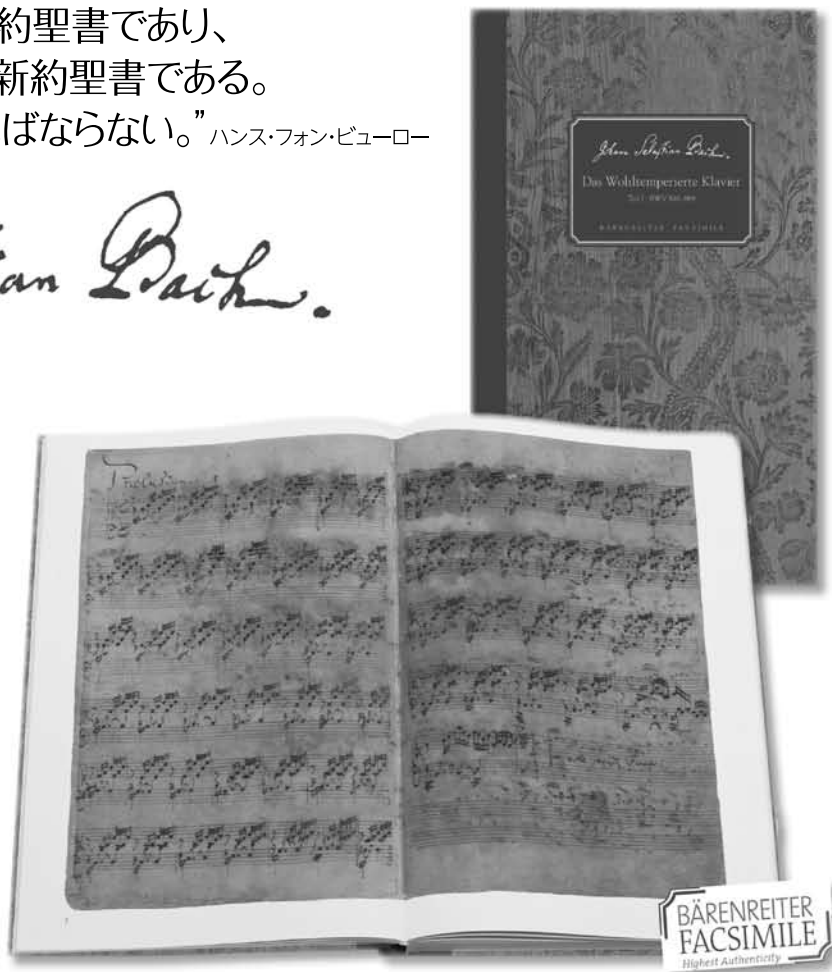 約聖書であり、
新約聖書である。
ばならない。”ハンス・フォン・ビューロー
an Bach.
Johann Sebastian Bach.
Das Wohltemperierte Klavier
Teil I BWV
BÄRENREITER FACSIMILE
BÄRENREITER
FACSIMILE
Highest Authenticity